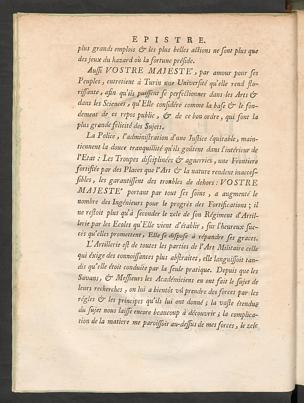 EPISTRE.
plus grands emplois & les plus belles actions ne sont plus que
des jeux du hazard où la fortune préside.
Aussi VOSTRE MAJESTE', par amour pour ses
Peuples, entretient à Turin une Université qu'elle rend flo-
rissante, afin qu'ils puissent se perfectionner dans les Arts &
dans les Sciences, qu'Elle considére comme la base & le fon-
dement de ce repos public, & de ce bon ordre, qui font la
plus grande félicité des Sujets.
La Police, l'administration d'une Justice équitable, main-
tiennent la douce tranquillité qu'ils goûtent dans l'intérieur de
l'Etat: Les Troupes disciplinées & aguerries, une Frontiere
fortifiée par des Places que l'Art & la nature rendent inacces-
sibles, les garantissent des troubles de dehors: VOSTRE
MAJESTE' portant par tout ses soins, a augmenté le
nombre des Ingénieurs pour le progrès des Fortifications; il
ne restoit plus qu'à seconder le zele de son Régiment d'Artil-
lerie par les Ecoles qu'Elle vient d'établir, sur l'heureux suc-
cès qu'elles promettent, Elle se dispose à répandre ses graces.
L'Artillerie est de toutes les parties de l'Art Militaire celle
qui éxige des connoissances plus abstraites, elle languissoit tan-
dis qu'elle étoit conduite par la seule pratique. Depuis que les
Savans, & Messieurs les Académiciens en ont fait le sujet de
leurs recherches, on lui a bientôt vû prendre des forces par les
régles & les principes qu'ils lui ont donné; la vaste étenduë
du sujet nous laisse encore beaucoup à découvrir; la complica-
tion de la matiere me paroissoit au-dessus de mes forces, le zele